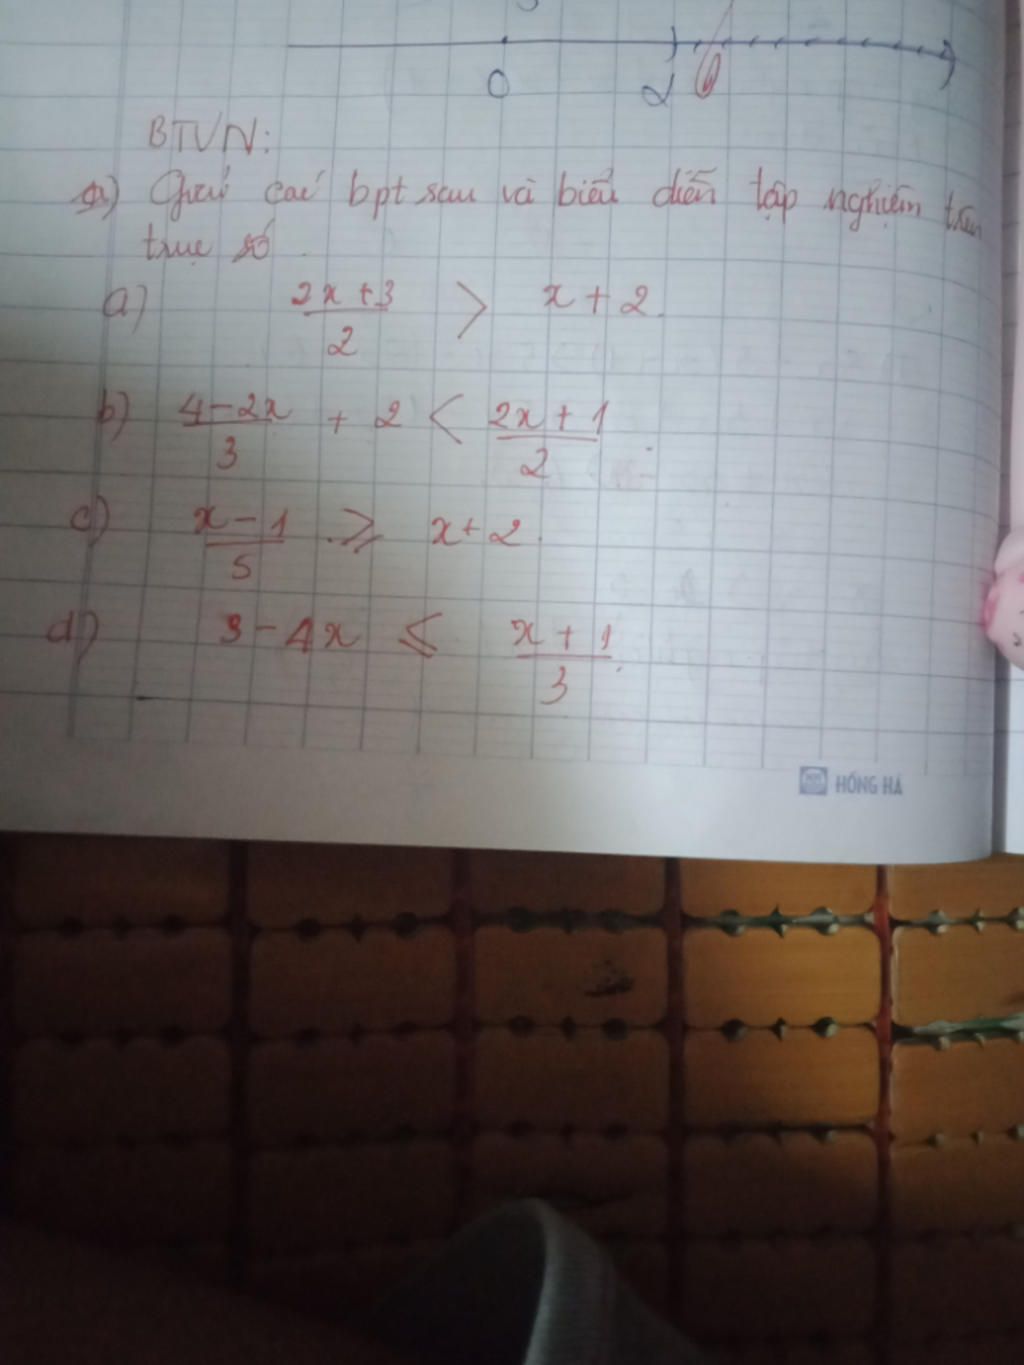 0 2
BTVN:
Giải các bpt sau và biểu diễn tập nghiệm trên
trục số.
a) \frac{2x+3}{2} > x+2.
b) \frac{4-2x}{3} + 2 < \frac{2x+1}{2}
c) \frac{x-1}{5} ≥ x+2.
d) 3-4x ≤ \frac{x+1}{3}.
HỒNG HÀ